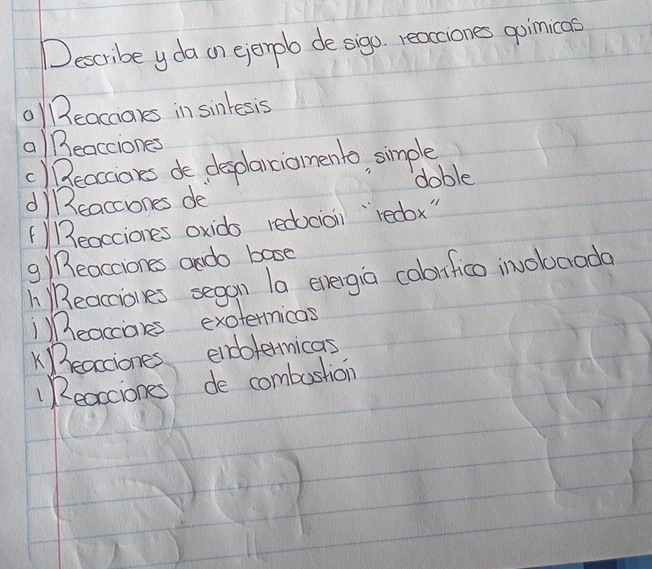 Describe y da un ejemplo de sigu. reacciones quimicas
a) Reacciones in sintesis
a) Reacciones
c) Reacciones de desplaiciamento simple
d) Reacciones de " " doble
f) Reacciones oxido reducion "redox"
g) Reacciones acido base
h) Reacciones segun la energia calorifico involucrada
i) Reacciones exotermicas
K) Reacciones endotermicas
l) Reacciones de combustion